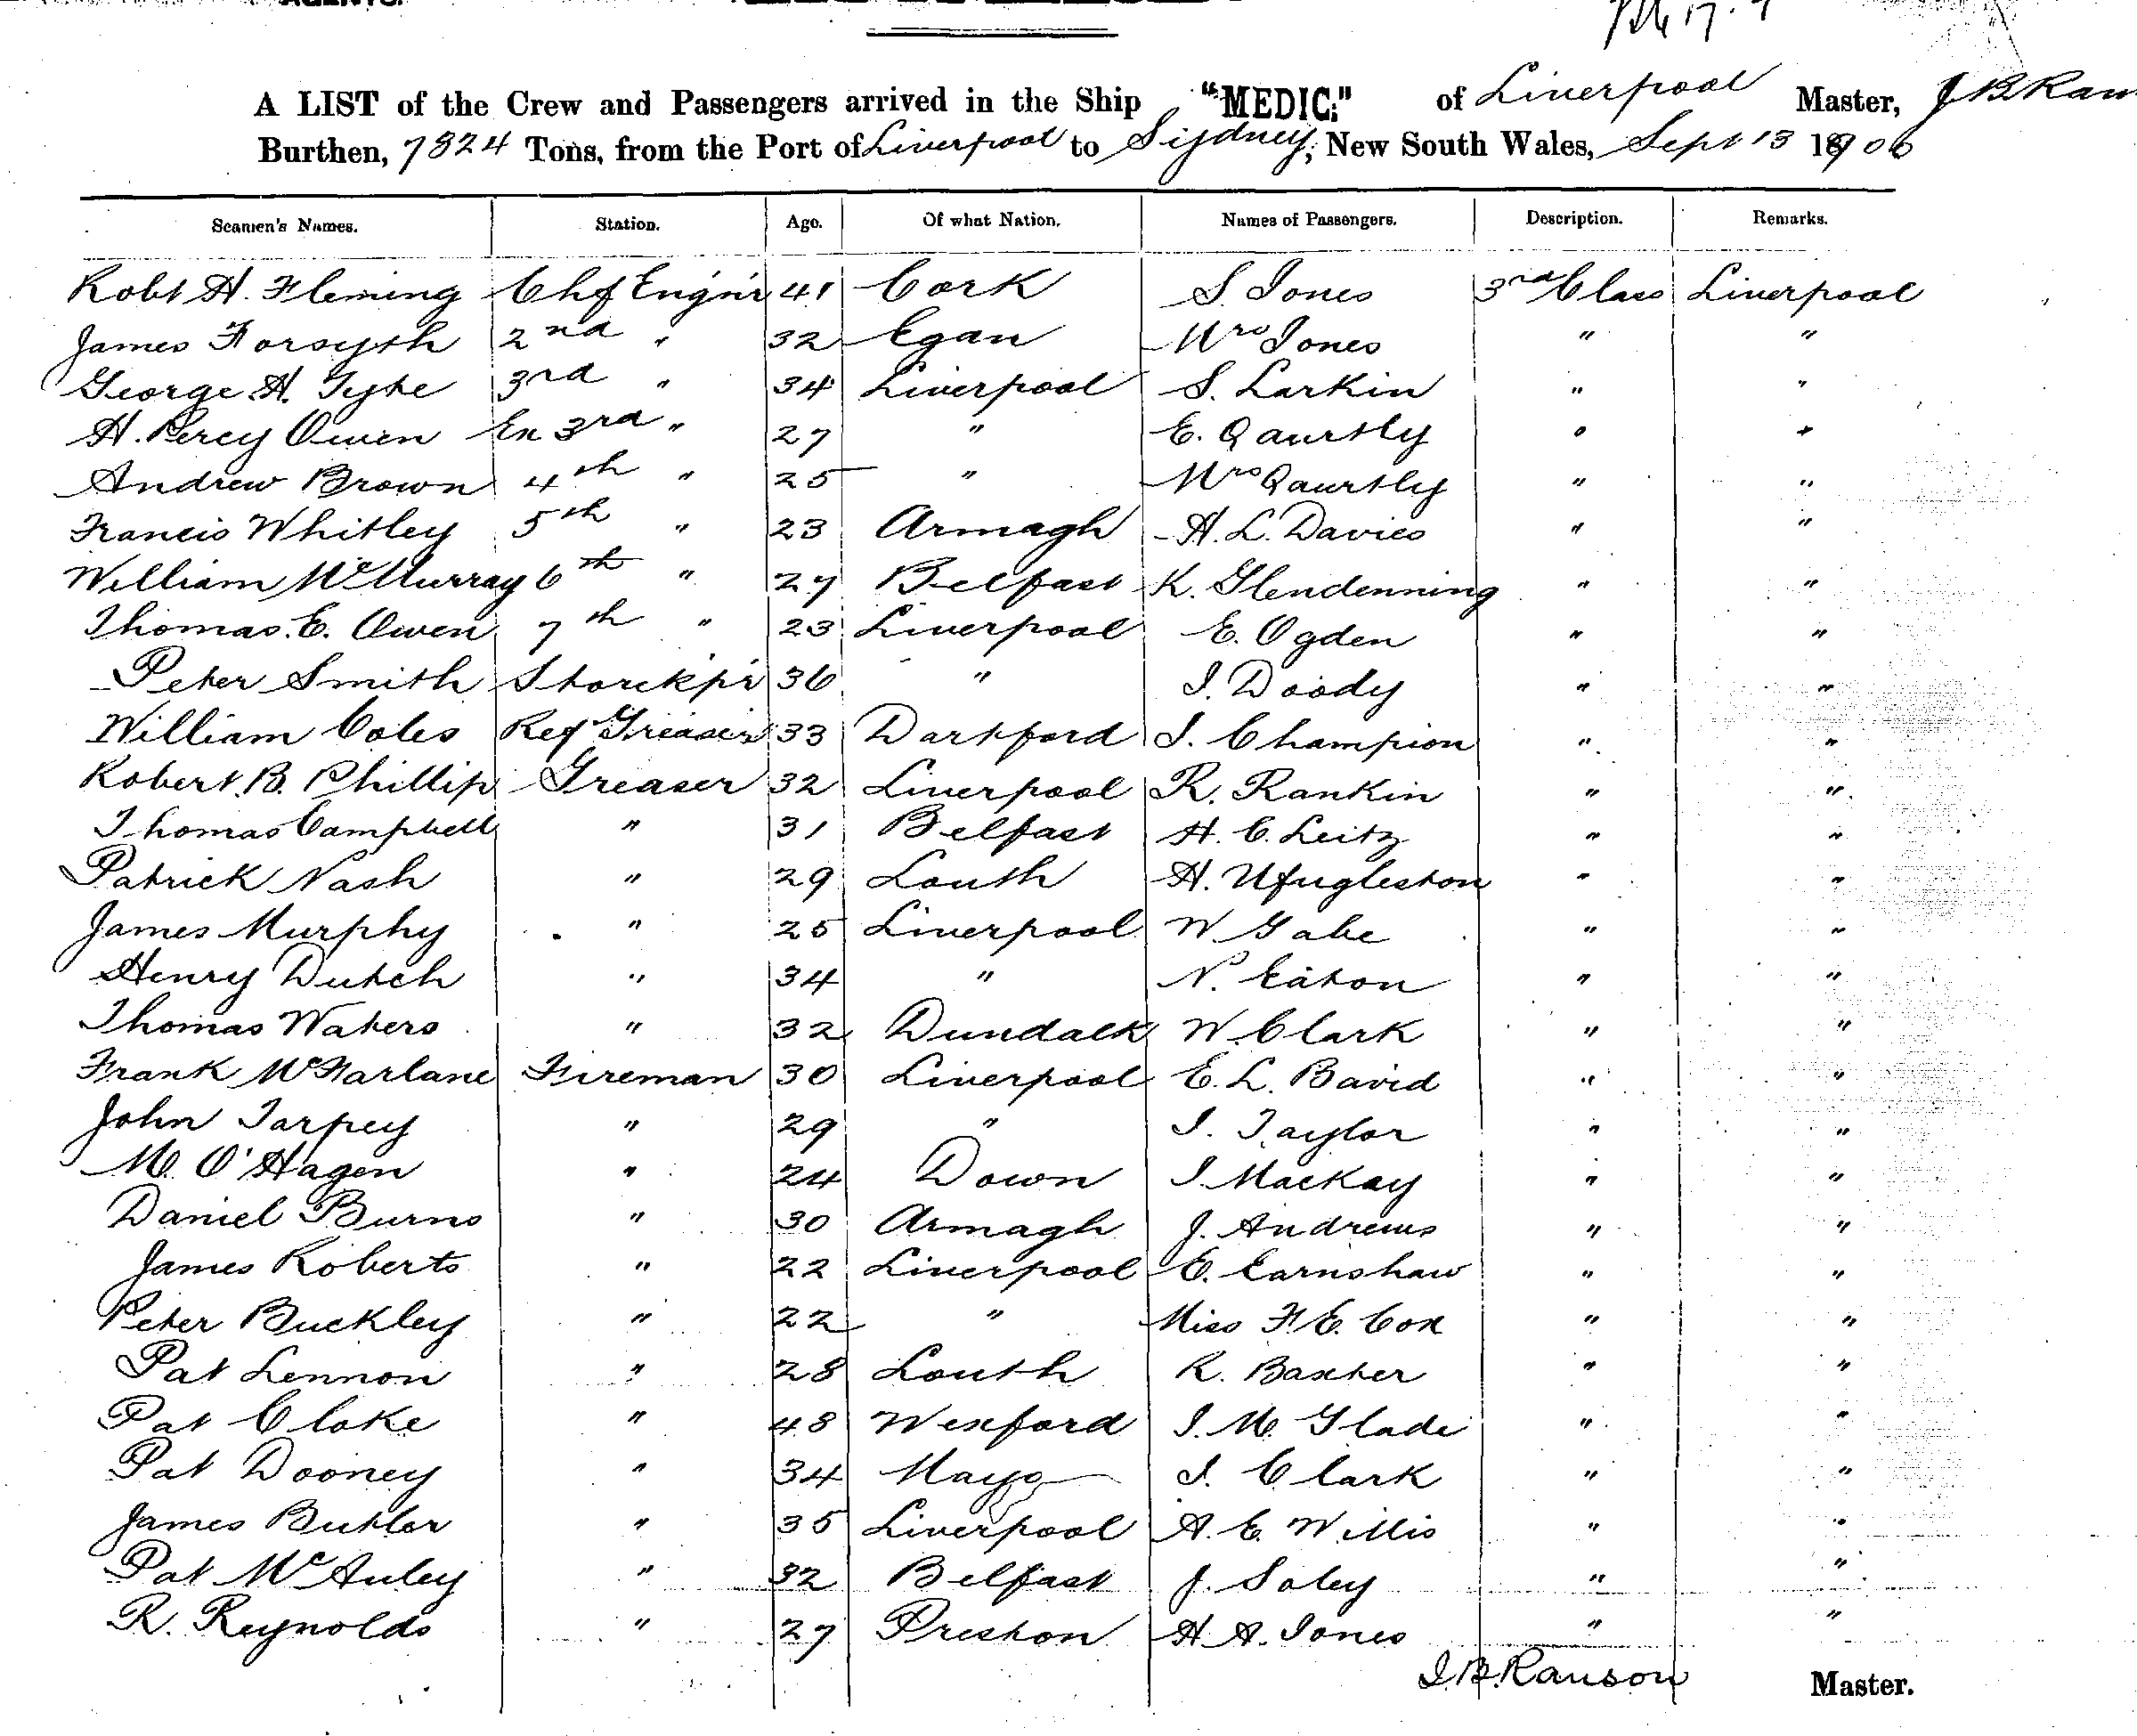 AGENTS.
A LIST of the Crew and Passengers arrived in the Ship "MEDIC." of Liverpool Master, J B Ran
Burthen, 7824 Tons, from the Port of Liverpool to Sydney, New South Wales, Sept 13 1906
Seamen's Names. Station. Age. Of what Nation. Names of Passengers. Description. Remarks.
Robt H. Fleming Chf Engn'r 41 Cork S. Jones 3rd Class Liverpool
James Forsyth 2nd " 32 Egan Mrs Jones " "
George H. Tyte 3rd " 34 Liverpool S. Larkin " "
H. Percy Owen Ex 3rd " 27 " E. Qaurtly " "
Andrew Brown 4th " 25 " Mrs Qaurtly " "
Francis Whitley 5th " 23 Armagh H. L. Davies " "
William McMurray 6th " 27 Belfast K. Glendenning " "
Thomas. E. Owen 7th " 23 Liverpool E. Ogden " "
Peter Smith Storekp'r 36 " J. Doody " "
William Coles Ref Greaser 33 Dartford J. Champion " "
Robert. B. Phillip Greaser 32 Liverpool R. Rankin " "
Thomas Campbell " 31 Belfast H. C. Leitz " "
Patrick Nash " 29 Louth H. " "
James Murphy " 25 Liverpool W. Gabe " "
Henry Dutch " 34 " N. Eaton " "
Thomas Waters " 32 Dundalk W. Clark " "
Frank McFarlane Fireman 30 Liverpool E. L. Bavid " "
John Tarpey " 29 " J. Taylor " "
M. O'Hagen " 24 Down J. Mackay " "
Daniel Burns " 30 Armagh J. Andrews " "
James Roberts " 22 Liverpool E. Earnshaw " "
Peter Buckley " 22 " Miss F. E. Cox " "
Pat Lennon " 28 Louth R. Baxter " "
Pat Cloke " 48 Wexford J. M. Glade " "
Pat Dooney " 34 Mayo J. Clark " "
James Butler " 35 Liverpool A. E. Willis " "
Pat McAuley " 32 Belfast J. Soley " "
R. Reynolds " 27 Preston H. A. Jones " "
J. B. Ranson Master.